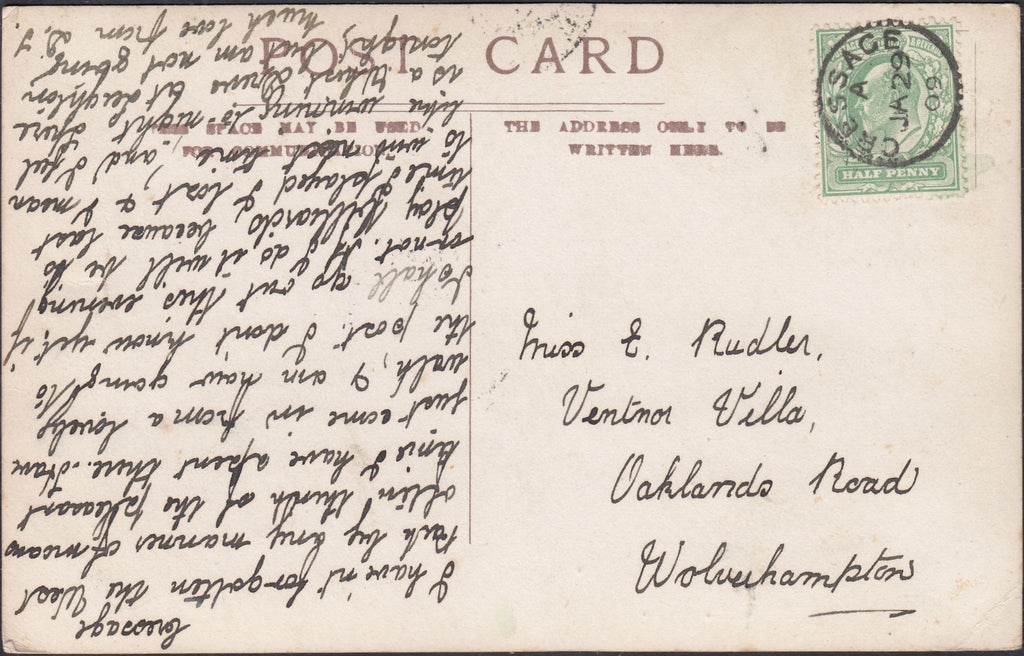 POST CARD
THIS SPACE MAY BE USED
FOR COMMUNICATION
THE ADDRESS ONLY TO BE
WRITTEN HERE
CRESSAGE
A
JA 29
09
HALF PENNY
Miss E. Rudler,
Ventnor Villa,
Oaklands Road
Wolverhampton
Cressage
I haven't forgotten the West
Park by any manner of means
often think of the pleasant
time I have spent there. I have
just come in from a lovely
walk, & am now going to
the post. I don't know yet if
I shall go out this evening
or not. If I do it will be to
play Billiards, because last
time I played I lost & I mean
to win next time, and I feel
like winning to-night. There
to a Whist Drive at Leighton
tonight, but am not going.
Much love from L. J.